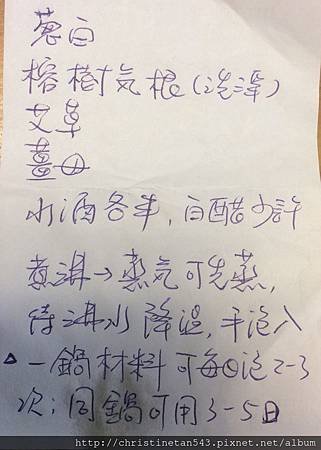 蔥白
榕樹気根(洗淨)
艾草
薑母
水酒各半,白醋少許
煮滾→蒸気可先蒸,
待滾水降溫,手泡入
△一鍋材料可每日泡2-3
次;同鍋可用3-5日
http://christinetan543.pixnet.net/album